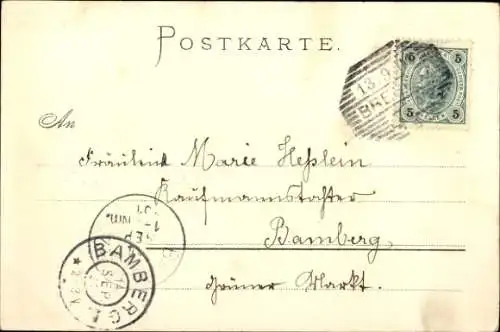 POSTKARTE.
5 5
13 9
BREG
5 5
An
Fräulein Marie Heßlein
Kaufmannstochter
Bamberg,
Grüner Markt.
SEP
BAMBERG I.
14
SEP